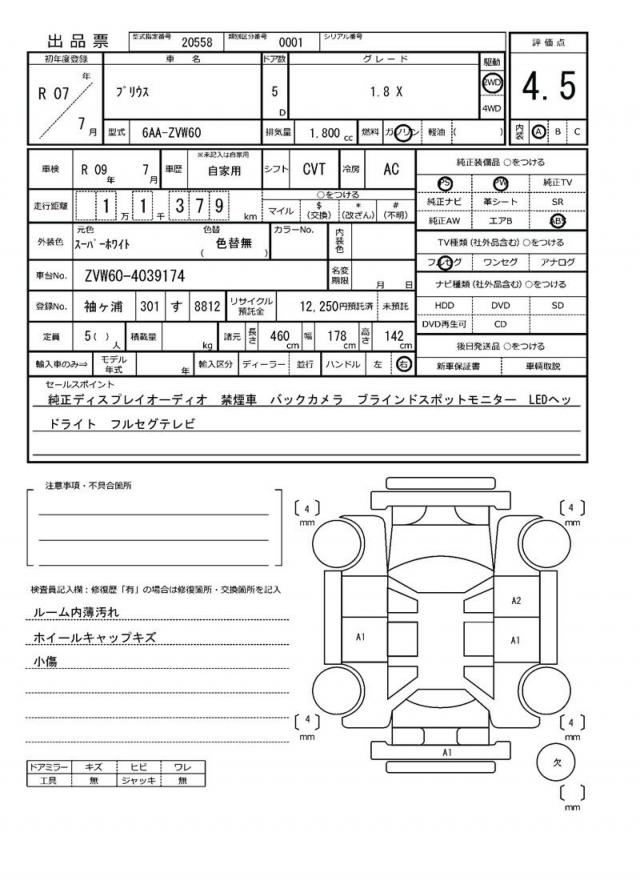 出品票
型式指定番号 20558 類別区分番号 0001 シリアル番号
評価点
4.5
内装 A B C
初年度登録 車名 ドア数 グレード 駆動
R 07年 7月 プリウス 5 D 1.8 X 2WD 4WD
型式 6AA-ZVW60 排気量 1.800 cc 燃料 ガソリン 軽油 ( )
車検 R 09年 7月 車歴 ※未記入は自家用 自家用 シフト CVT 冷房 AC
走行距離 1万1千379 km
○をつける
マイル $(交換) *(改ざん) #(不明)
外装色 元色 スーパーホワイト 色替 ( 色替無 ) カラーNo. 内装色
車台No. ZVW60-4039174 名変期限 月 日
登録No. 袖ヶ浦 301 す 8812 リサイクル預託金 12,250円預託済 未預託
定員 5( )人 積載量 kg 諸元 長さ 460cm 幅 178cm 高さ 142cm
輸入車のみ⇒ モデル年式 年 輸入区分 ディーラー 並行 ハンドル 左 右
純正装備品 ○をつける
PS PW 純正TV
純正ナビ 革シート SR
純正AW エアB ABS
TV種類(社外品含む)○をつける
フルセグ ワンセグ アナログ
ナビ種類(社外品含む)○をつける
HDD DVD SD
DVD再生可 CD
後日発送品 ○をつける
新車保証書 車輌取説
セールスポイント
純正ディスプレイオーディオ 禁煙車 バックカメラ ブラインドスポットモニター LEDヘッ
ドライト フルセグテレビ
注意事項・不具合箇所
検査員記入欄:修復歴「有」の場合は修復箇所・交換箇所を記入
ルーム内薄汚れ
ホイールキャップキズ
小傷
ドアミラー キズ ヒビ ワレ
工具 無 ジャッキ 無
[ 4 ] mm
[ 4 ] mm
A2
A1
A1
[ 4 ] mm
[ 4 ] mm
A1
欠
[ ] mm